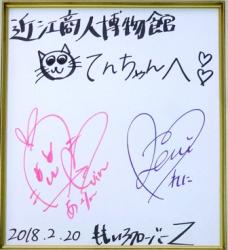 近江商人博物館
てんちゃんへ♡♡
あーりん
れに
2018.2.20 ももいろクローバーZ